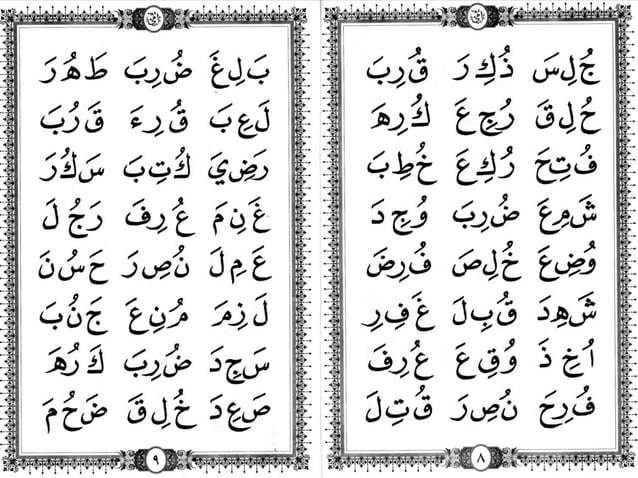 جُلِسَ ذُكِرَ قُرِبَ
خُلِقَ رُجِعَ كُرِهَ
فُتِحَ رُكِعَ خُطِبَ
شَمِعَ ضُرِبَ وُجِدَ
وُضِعَ خُلِصَ فُرِضَ
شَهِدَ قُبِلَ غَفِرِ
اُخِذَ وُقِعَ عُرِفَ
فُرِحَ نُصِرَ قُتِلَ
٨
بَلِغَ ضُرِبَ طَهُرَ
لَعِبَ قُرِءَ قَرُبَ
رَضِيَ كُتِبَ سَكُرَ
غَنِمَ عُرِفَ رَجُلَ
عَمِلَ نُصِرَ حَسُنَ
لَزِمَ مُنِعَ جَنُبَ
سَجِدَ ضُرِبَ كَرُهَ
صَعِدَ خُلِقَ ضَحُمَ
٩